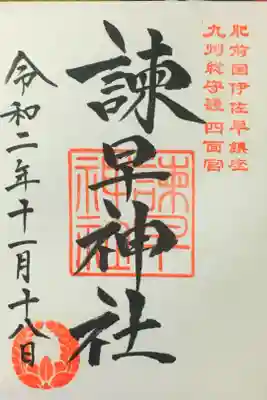 肥前国伊佐早鎮座
九州総守護 四面宮
諫早神社
諫早神社
令和二年十一月十八日